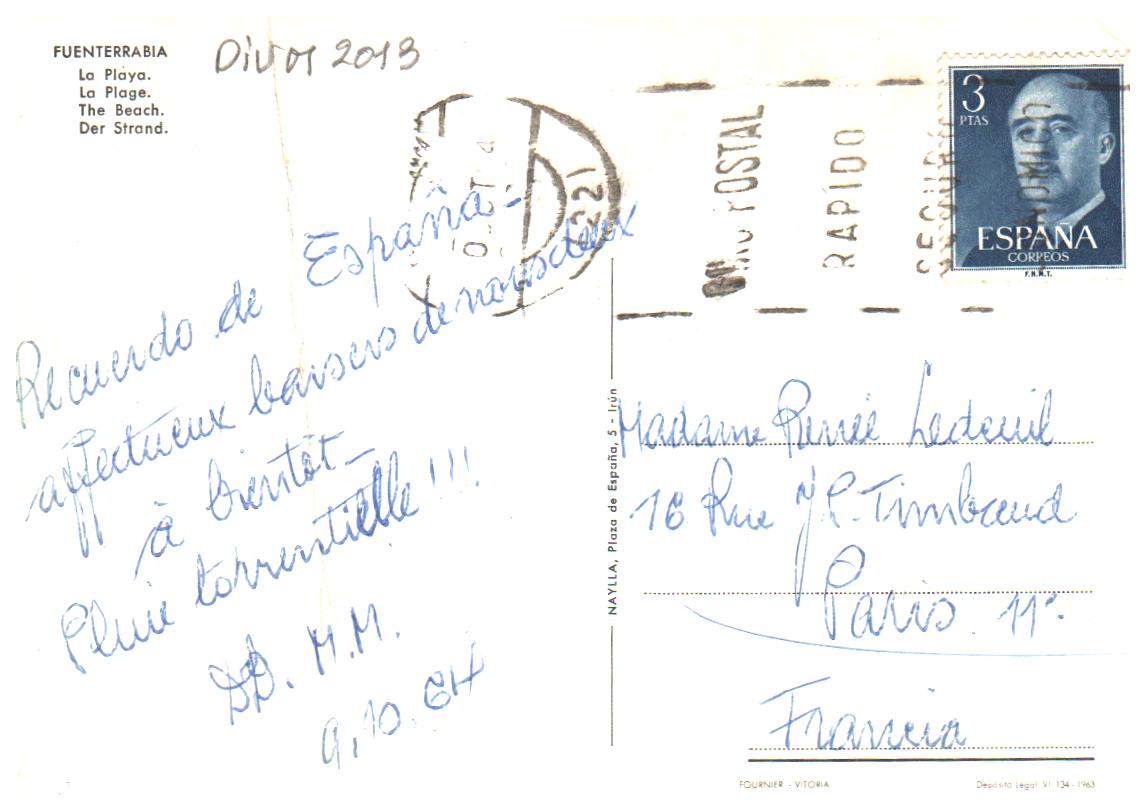 FUENTERRABIA
La Playa.
La Plage.
The Beach.
Der Strand.
Divos 2013
3
PTAS
ESPAÑA
CORREOS
F.N.M.T.
POSTAL
RAPIDO
SEGURO
Recuerdo de España -
affectueux baisers de nous deux
à bientôt -
Pluie torrentielle !!!
DD. M.M.
9.10.64
NAYLLA, Plaza de España, 5 - Irún
Madame Renée Ledeuil
16 Rue J.P. Timbaud
Paris 11e
Francia
FOURNIER - VITORIA
Depósito Legal: VI. 134 - 1963